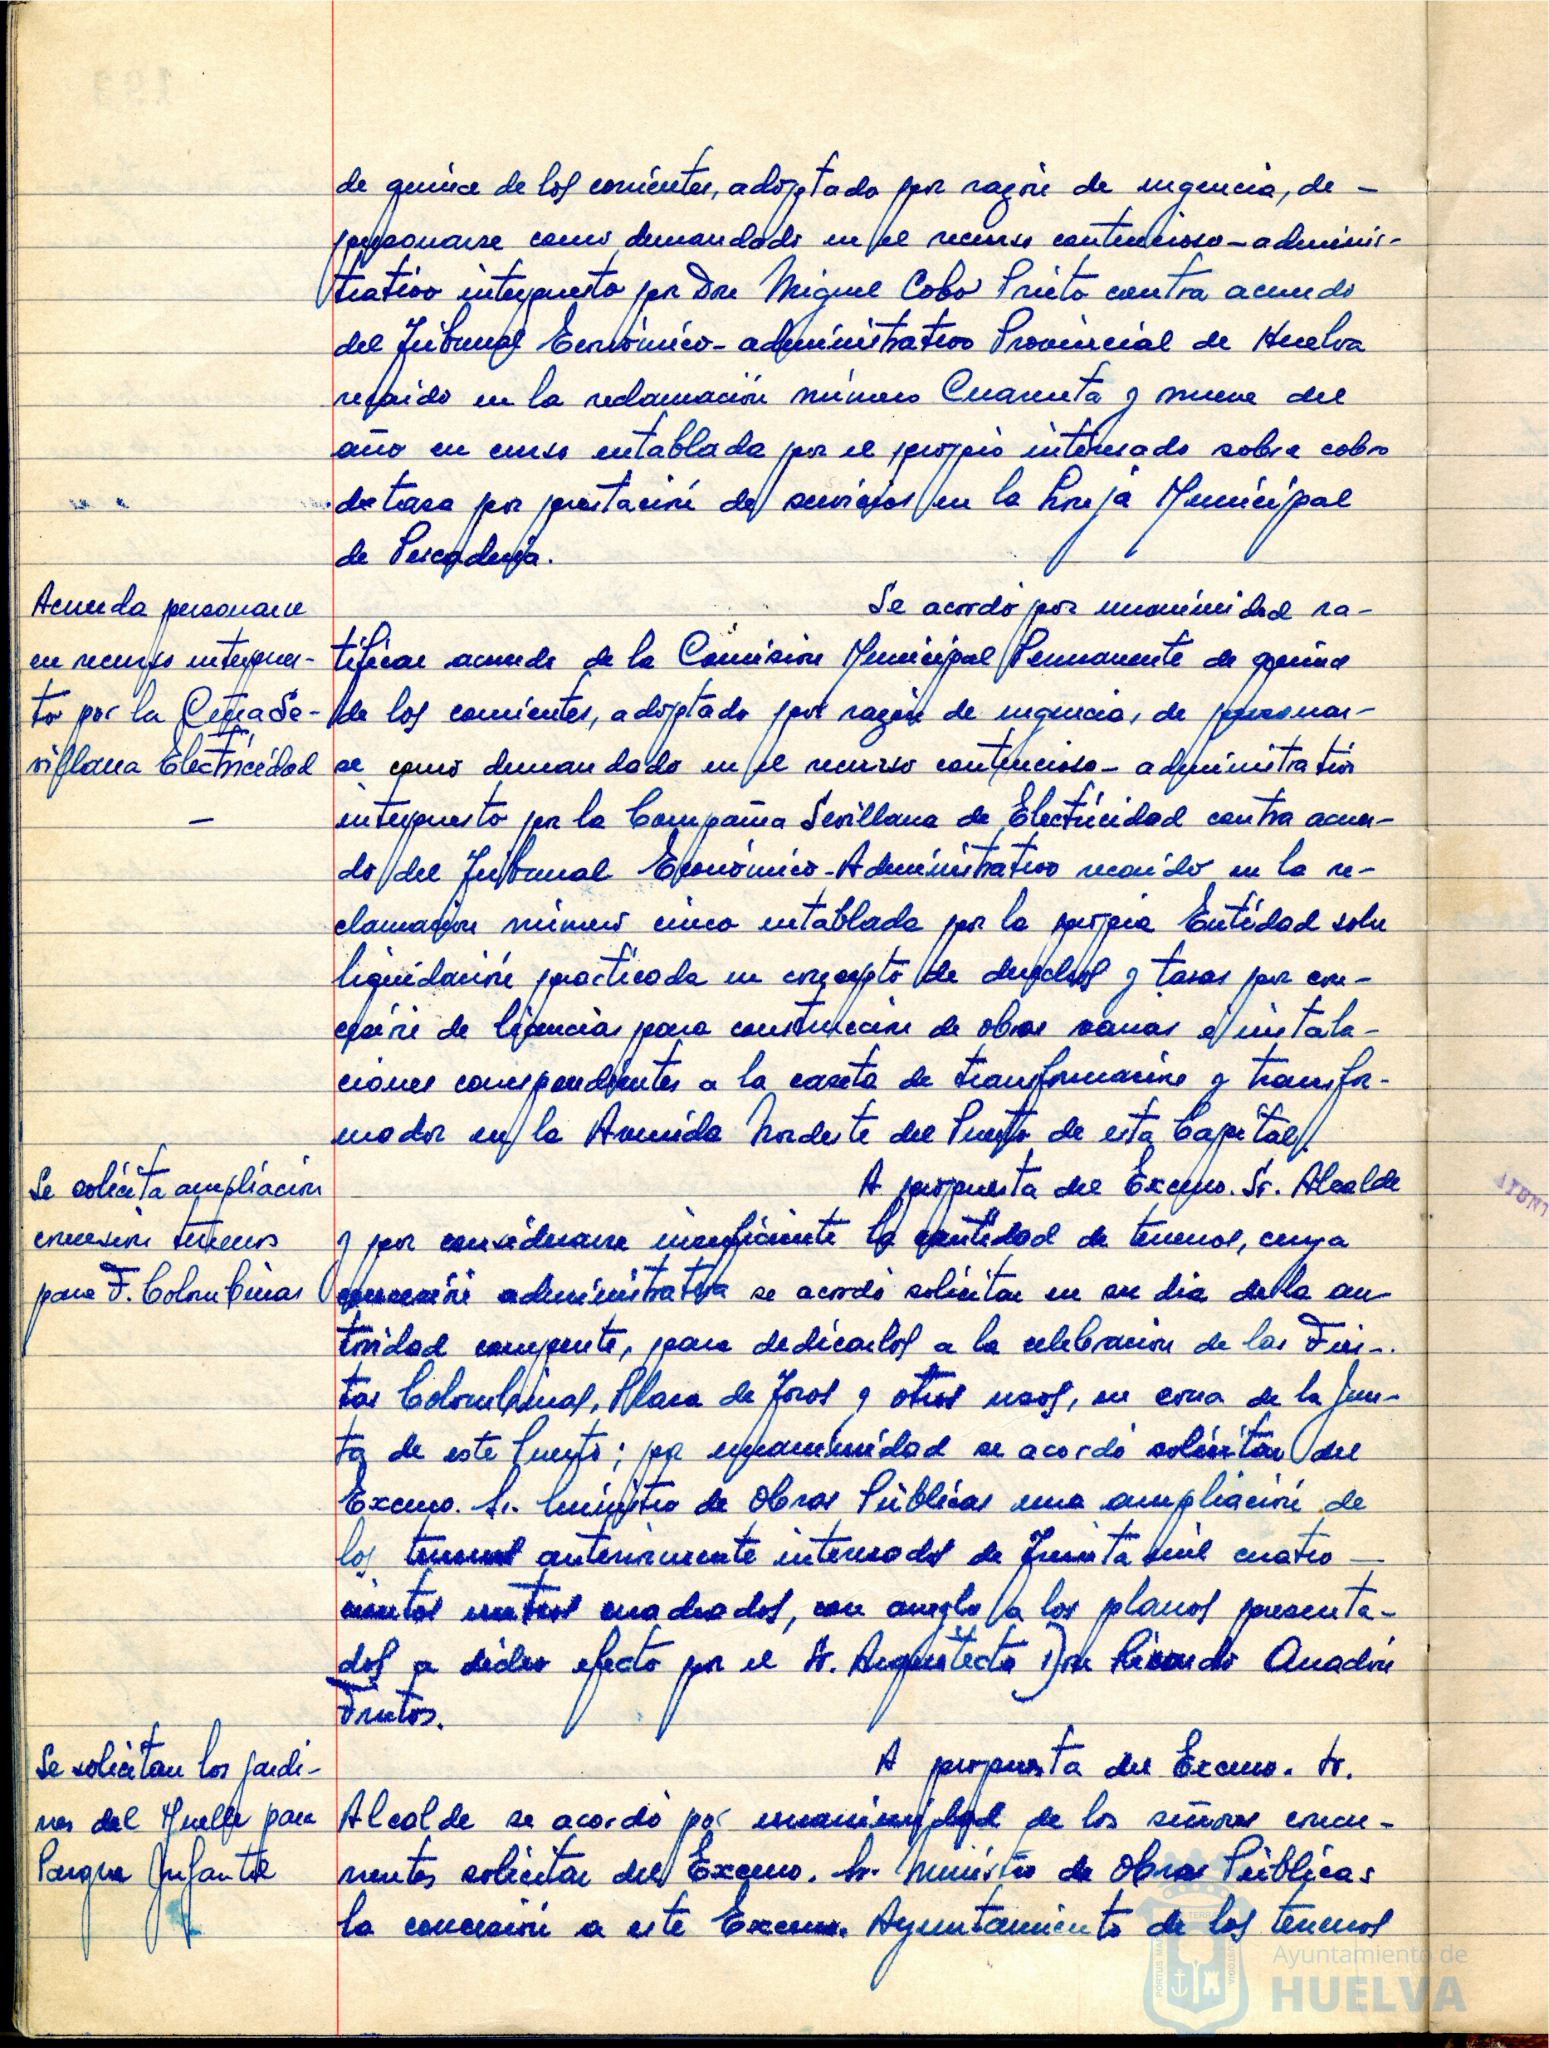 de quince de los corrientes, adoptado por razón de urgencia, de –
personarse como demandado en el recurso contencioso-adminis-
trativo interpuesto por Don Miguel Cobo Prieto contra acuerdo
del Tribunal Económico-administrativo Provincial de Huelva
recaido en la reclamación número Cuarenta y nueve del
año en curso entablada por el propio interesado sobre cobro
de tasa por prestación de servicios en la Lonja Municipal
de Pescadería.
Acuerda personarse
en recurso interpues-
to por la Cmpª Se-
villana Electricidad
–
Se acordó por unanimidad ra-
tificar acuerdo de la Comisión Municipal Permanente de quince
de los corrientes, adoptado por razón de urgencia, de personar-
se como demandado en el recurso contencioso-administrativo
interpuesto por la Compañía Sevillana de Electricidad contra acuer-
do del Tribunal Económico-Administrativo recaido en la re-
clamación número cinco entablada por la propia Entidad sobre
liquidación practicada en concepto de derechos y tasas por con-
cesión de licencias para construcción de obras varias e instala-
ciones correspondientes a la caseta de transformación y transfor-
mador en la Avenida Nordeste del Puerto de esta Capital.
Se solicita ampliación
concesión terrenos
para F. Colombinas
A propuesta del Excmo. Sr. Alcalde
y por considerarse insuficiente la cantidad de terrenos, cuya
concesión administrativa se acordó solicitar en su dia de la au-
toridad competente, para dedicarlos a la celebración de las Fies-
tas Colombinas, Plaza de Toros y otros usos, en zona de la Jun-
ta de este Puerto; por unanimidad se acordó solicitar del
Excmo. Sr. Ministro de Obras Públicas una ampliación de
los terrenos anteriormente interesados de Treinta mil cuatro –
cientos metros cuadrados, con arreglo a los planos presenta-
dos a dicho efecto por el Sr. Arquitecto Don Ricardo Anadón
Frutos.
Se solicitan los jardi-
nes del Muelle para
Parque Infantil
A propuesta del Excmo. Sr.
Alcalde se acordó por unanimidad de los señores concu-
rrentes solicitar del Excmo. Sr. Ministro de Obras Públicas
la concesión a este Excmo. Ayuntamiento de los terrenos
Ayuntamiento de
HUELVA